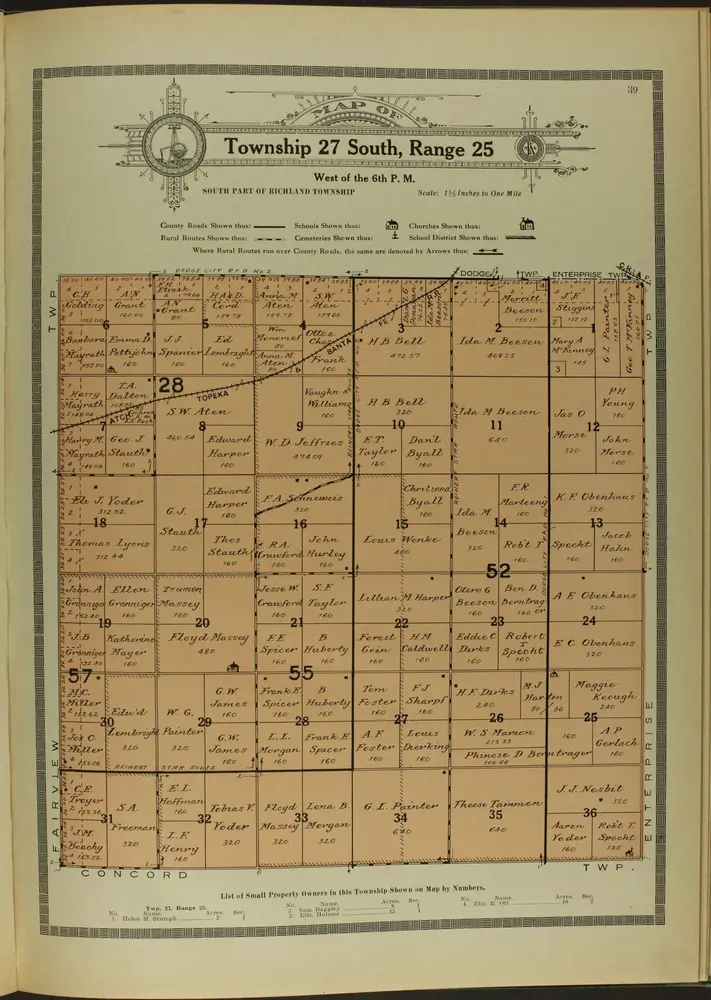 39
MAP OF
Township 27 South, Range 25
West of the 6th P. M.
SOUTH PART OF RICHLAND TOWNSHIP
Scale: 1½ Inches to One Mile
County Roads Shown thus:
Schools Shown thus:
Churches Shown thus:
Rural Routes Shown thus:
Cemeteries Shown thus:
School District Shown thus:
Where Rural Routes run over County Roads, the same are denoted by Arrows thus:
DODGE CITY R.F.D No 2
DODGE
TWP.
ENTERPRISE TWP.
TWP
TWP.
C.H. Golding
A.N. Grant 160
A N Grant 80
H.A & D. Cord 159.78
Anna M Aten 159.78
S.W. Aten
Merritt Beeson
J.E. Stiggins
G L Painter
Geo T McKinney
6
5
4
3
2
1
Barbara Mayrath
Emma D. Pettijohn 160
J.J. Spanier 160
Ed Lembright 160
Wm Moncrief 80
Anna M. Aten 80
Frank 160
H B Bell 472.57
Ida M. Beeson 468.25
Mary A McKinney 145
3
SANTA FE
28
TOPEKA
Harry Mayrath
T.A. Dalton
S.W. Aten 460.54
Vaughn Williams 160
H B Bell 320
Ida M Beeson 640
Jas O Morse 320
PH Young 160
7
8
9
10
11
12
Harry M. Mayrath
Geo. J. Stauth 160
Edward Harper 160
W.D. Jeffries 474.09
E.T. Taylor 160
Dan'l Byall 160
John Morse 160
Eli J. Yoder 312.52
G.J. Stauth 320
Edward Harper 160
F.A. Sonneweis 320
Christiana Byall 160
Ida M. Beeson 320
F.R. Marteeny 160
K.F. Obenhaus 320
18
17
16
15
14
13
Thomas Lyons 312.44
Thos Stauth 160
R.A. Crawford 160
John Hurley 160
Louis Wenke 480
Rob't T. Specht
Jacob Hahn 160
52
John A Gronniger
Ellen Gronniger 160
Truman Massey 160
Jesse W. Crawford 160
S.F. Taylor 160
Lillian M Harper 320
Otero G Beeson 160
Ben D. Borntrager 160
A E Obenhaus 320
19
20
21
22
23
24
J.B Gronniger
Katherine Mayer 160
Floyd Massey 480
F.E. Spicer 160
B Huberty 160
Forest Goin 160
H.M Caldwell 160
Eddie C Dirks 160
Robert T Specht 160
E C Obenhaus 320
57
55
M.C. Miller
Edw'd Lembright 320
W. G. Painter 320
G.W. James 160
Frank E Spicer 160
B Huberty 160
Tom Foster 160
F J Sharpf 160
H.F. Dirks 240
M J Harten 80 80
Maggie Keough 240
30
29
28
27
26
25
Jos C Miller
G.W. James 160
L.L. Morgan 160
Frank E Spicer 160
A.F Foster 160
Louis Dierking 160
W. S Marion
Phinese D Borntrager 160
A.P Gerlach 160
REINERT STAR ROUTE
C.E. Troyer
S.A. Freeman 320
E.L. Hoffman 160
Tobias V. Yoder 320
Floyd Massey 320
Lena B Morgan 320
G.L. Painter 640
Theese Tammen 640
J.J. Nesbit 320
31
32
33
34
35
36
J.M. Beachy
L.F. Henry 160
Aaron Yoder 160
Rob't T. Specht
FAIRVIEW
ENTERPRISE
CONCORD
TWP.
List of Small Property Owners in this Township Shown on Map by Numbers.
Twp. 27, Range 25.
No. Name. Acres. Sec.
1. Helen M. Stumph 2 1
2. Sam Baggley
3. Eliz. Holmes
4. Eliz. E. Ott 10 2